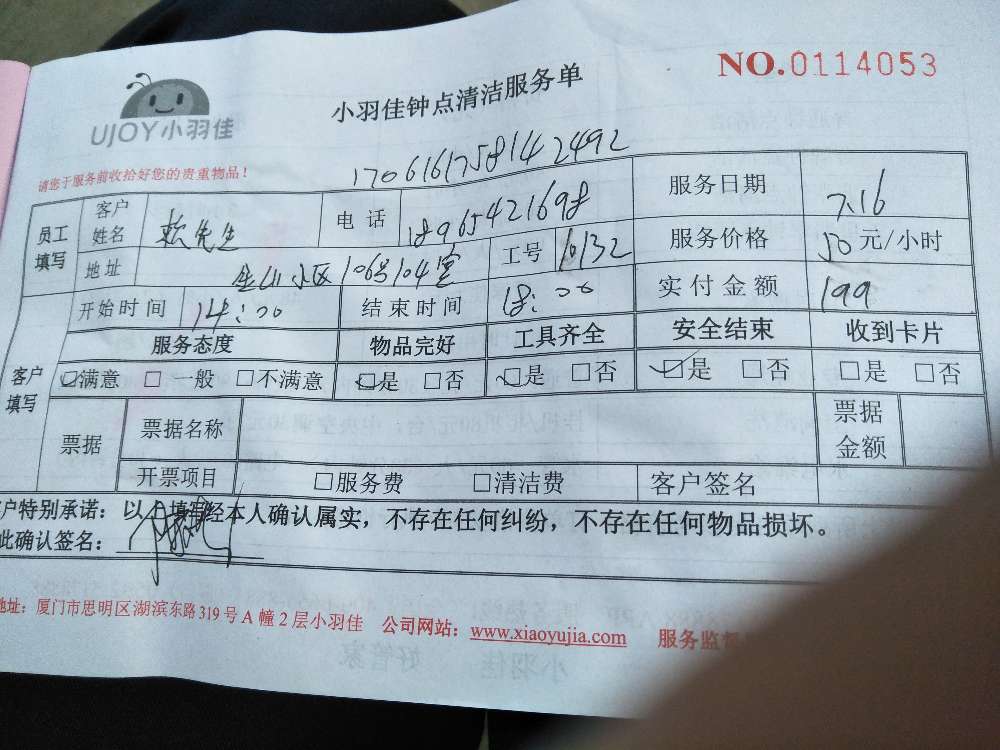 NO.0114053
UJOY小羽佳
小羽佳钟点清洁服务单
请您于服务前收拾好您的贵重物品！
1706161758142492
员工填写 客户姓名 赖先生 电话 18965421698 服务日期 7.16
地址 金山小区106号104室 工号 10132 服务价格 50元/小时
开始时间 14:00 结束时间 18:00 实付金额 199
客户填写 服务态度 物品完好 工具齐全 安全结束 收到卡片
☑满意 □一般 □不满意 ☑是 □否 ☑是 □否 ☑是 □否 □是 □否
票据 票据名称 票据金额
开票项目 □服务费 □清洁费 客户签名
客户特别承诺：以上填写经本人确认属实，不存在任何纠纷，不存在任何物品损坏。
此确认签名：
地址：厦门市思明区湖滨东路319号A幢2层小羽佳 公司网站：www.xiaoyujia.com 服务监督